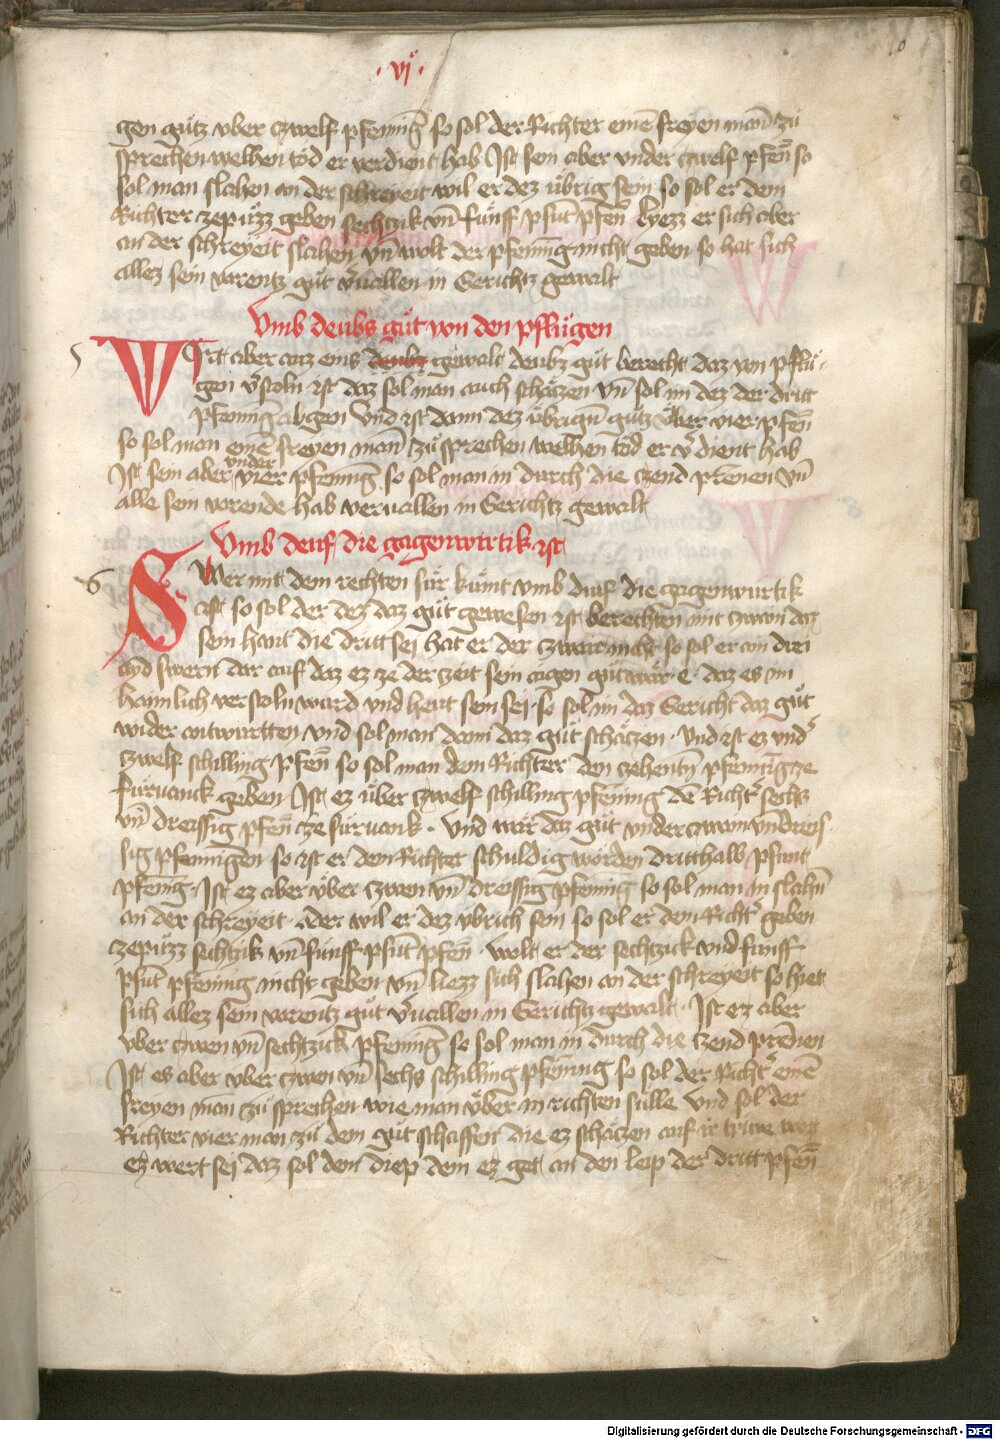 · vi° ·
10
gen gůtz vber czwelf pfenning so sol der Richter einē freyen mañ zů
sprechen welhen tod er verdient hab Ist sein aber vnder zwelf pfeñ so
sol man slahen an der schreyeit wil er dez übrig sein so sol er dem
Richter zepůzz geben sechtzik vñ fünff pfūt pfeñ lyezz er sich aber
an der schreyeit slahen vñ wolt der pfenning nicht geben so hat sich
allez sein varentz gůt v̓uallen in Gerichtz gewalt
Vmb deubs gůt von den pflügen
5
Wirt aber auz eins deubz gewalt deubz gůt berecht daz von pflü-
gen v̓stoln ist daz sol man auch schätzen vñ sol im dez der dritt
pfenning abgen Vnd ist dann dez übrign̄ gůtz über vier pfeñ
so sol man einē freyen mañ zů sprechen welhen tod er v̓dient hab
vnder
Ist sein aber vier pfenning so sol man in durch die czend prēnen vñ
alle sein varende hab veruallen in Gerichtz gewalt
Vmb deuf die gagenwurtik ist
6
SWer mit dem rechten für kümt vmb diuf die gagenwurtik
ist so sol der dez daz gůt gewesen ist berechten mit zwain daz
sein hant die dritt sei hat er der zwair nicht so sol er ain drei
ayd swern dar auf daz ez ze der zeit sein aigen gůt wär e daz es im
hainlich verstoln ward vnd heut sein sei so sol im daz Gericht daz gůt
wider antwurtten vnd sol man dann daz gůt schätzen · Vnd ist ez vnd̓
czwelf schilling pfeñ so sol man dem Richter den zehentn̄ pfenning ze
füruanck geben Ist ez über czwelf schilling pfenning dē Richt̓ sechs
vñ dreissig pfeñ cze füruank · Vnd wir daz gůt vnder czwain vn̄ dreis-
sig pfenningen so ist er dem Richter schuldig worden dritthalb pfunt
pfening · Ist ez aber über czwen vñ dreissig pfening so sol man in slahn̄
an der schreyeit · Ader wil er dez vbrich sein so sol er dem Richt̓ geben
czepůzz sechtzik vñ fünff pfūt pfeñ · wolt er der sechtzick vnd fünff
pfūt pfening nicht geben vñ liezz sich slahen an der schreyeit so hiet
sich allez sein varentz gůt v̓uallen in Gerichtz gewalt · Ist ez aber
vber zwen vñ sechtzick pfening so sol man in durch die czend prēnen
Ist es aber vber czwen vñ sechs schilling pfening so sol der Richt̓ einē
freyen man zů sprechen wie man über in richten sülle Vnd sol der
Richter vier man zů dem gůt schaffen die ez schätzen auf ir triwe wez
ez wert sei daz sol dem diep dem ez get an den leip der dritt pfeñ
Digitalisierung gefördert durch die Deutsche Forschungsgemeinschaft - DFG